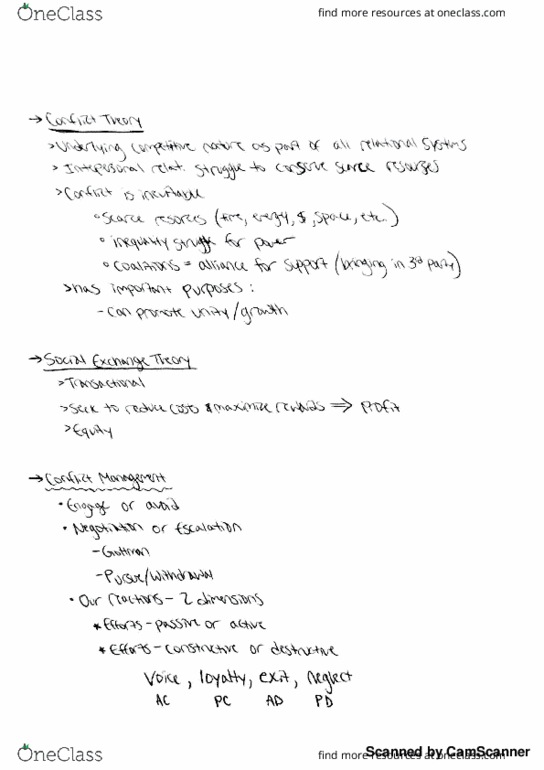 OneClass
find more resources at oneclass.com
→ Conflict Theory
> Underlying competitive nature as part of all relational systems
> Interpersonal relat. struggle to conserve scarce resources
> Conflict is inevitable
° Scarce resorces (time, energy, $, space, etc.)
° inequality struggle for power
° coalitions = alliance for support (bringing in 3rd party)
> has important purposes:
- can promote unity/growth
→ Social Exchange Theory
> Transactional
> Seek to reduce costs & maximize rewards ⇒ Profit
> Equity
→ Conflict Management
• Engage or avoid
• Negotiation or Escalation
- Gottman
- Pursue/Withdrawal
• Our reactions - 2 dimensions
* Efforts - passive or active
* Efforts - constructive or destructive
Voice, loyalty, exit, neglect
AC PC AD PD
OneClass
find more resources at oneclass.com
Scanned by CamScanner